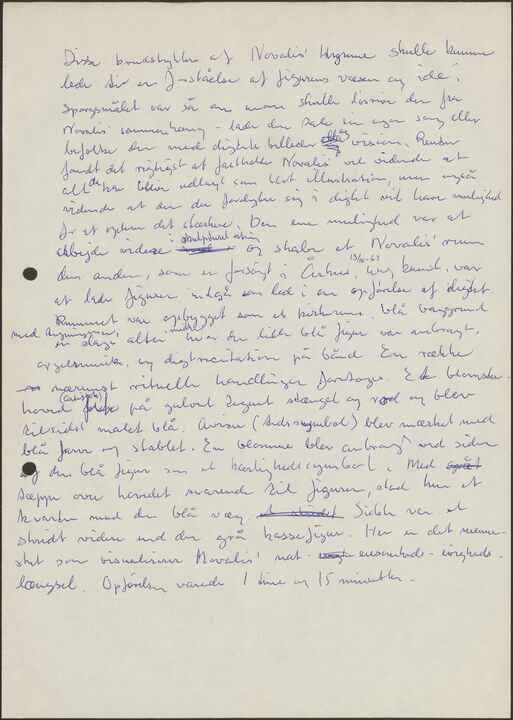 Disse brudstykker af Novalis' Hymne skulle kunne
lede til en forståelse af figurens væsen og idé.
Spørgsmålet var så om man skulle fjerne den fra
Novalis' sammenhæng - lade den tale sin egen sag eller
befolke den med digtets billeder visioner.
fandt det rigtigst at fastholde Novalis' vel vidende at
alt der kan blive udlagt som blot illustration, men også
vidende at den der fordyber sig i digtet vil have mulighed
for at opleve det stærkere. Den ene mulighed var at
arbejde videre skulpturel og skabe et Novalis' rum
den anden, som er forsøgt i Århus 13/6-69 kunst. var
at lade figuren indgå som led i en opførelse af digtet.
Rummet var opbygget som et kirkerum. blå baggrund
med en slags alter midtfor hvor den lille blå figur var anbragt.
orgelmusik og digtrecitation på bånd. En række
nærmest rituelle handlinger foretoges. Et blomster-
hoved på gulvet tegnet stængel og rod og blev
tilsidst malet blå. Aviser (tidssymbol) blev mærket med
blå farve og stablet. En blomme blev anbragt ved siden
af den blå figur som et kærlighedssymbol. Med
tæppe over hovedet svarende til figuren, stod hun et
kvarter mod den blå væg Sidste var et
skridt videre end den grå kassefigur. Her er det menne-
sket som visualiserer Novalis' nat - ensomheds - evigheds-
længsel. Opførelsen varede 1 time og 15 minutter.